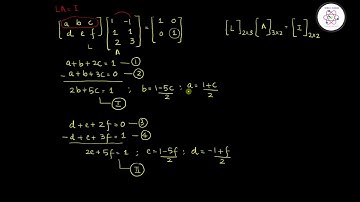 LA = I
[a b c
d e f] [1 -1
1 1
2 3] = [1 0
0 1]
L A
[L]2×3 [A]3×2 = [I]2×2
a+b+2c=1 — ①
-a+b+3c=0 — ②
2b+5c=1 ; b=1-5c/2 ; a=1+c/2
I
d+e+2f=0 — ③
-d+e+3f=1 — ④
2e+5f=1 ; e=1-5f/2 ; d=-1+f/2
II